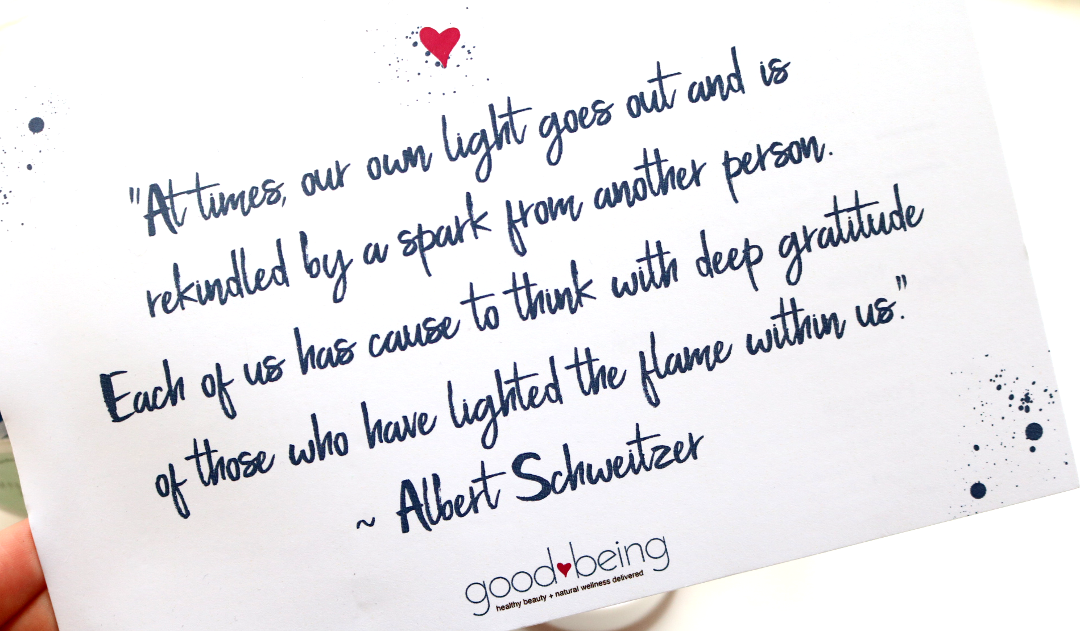 "At times, our own light goes out and is
rekindled by a spark from another person.
Each of us has cause to think with deep gratitude
of those who have lighted the flame within us."
~ Albert Schweitzer
good♥being
healthy beauty + natural wellness delivered